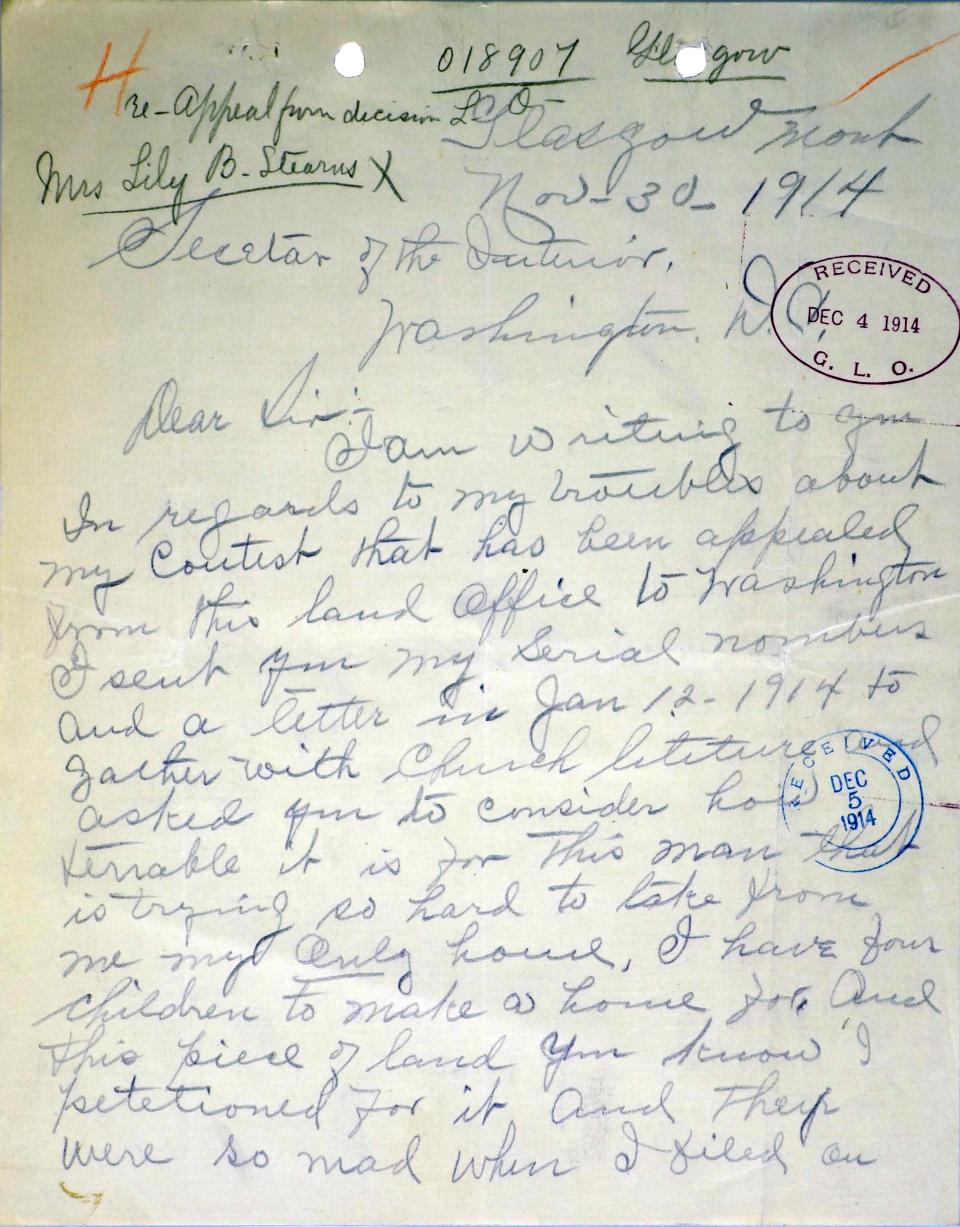 H
018907 Glasgow
re - Appeal from decision L O
Mrs Lily B. Stearns X
Glasgow Mont
Nov - 30 - 1914
Secetar of the Interior,
Washington, D.C.
RECEIVED
DEC 4 1914
G. L. O.
Dear Sir:-
I am writing to you
In regards to my troubles about
my Contest that has been appealed
from this land Office to Washington
I sent you my Serial nombers
and a letter in Jan 12 - 1914 to
gather with Church liteture and
RECEIVED
DEC
5
1914
asked you to consider how
terrable it is for this man that
is trying so hard to take from
me my Only home, I have four
children to make a home for, And
this piece of land you know I
petetioned for it And They
were so mad when I filed on